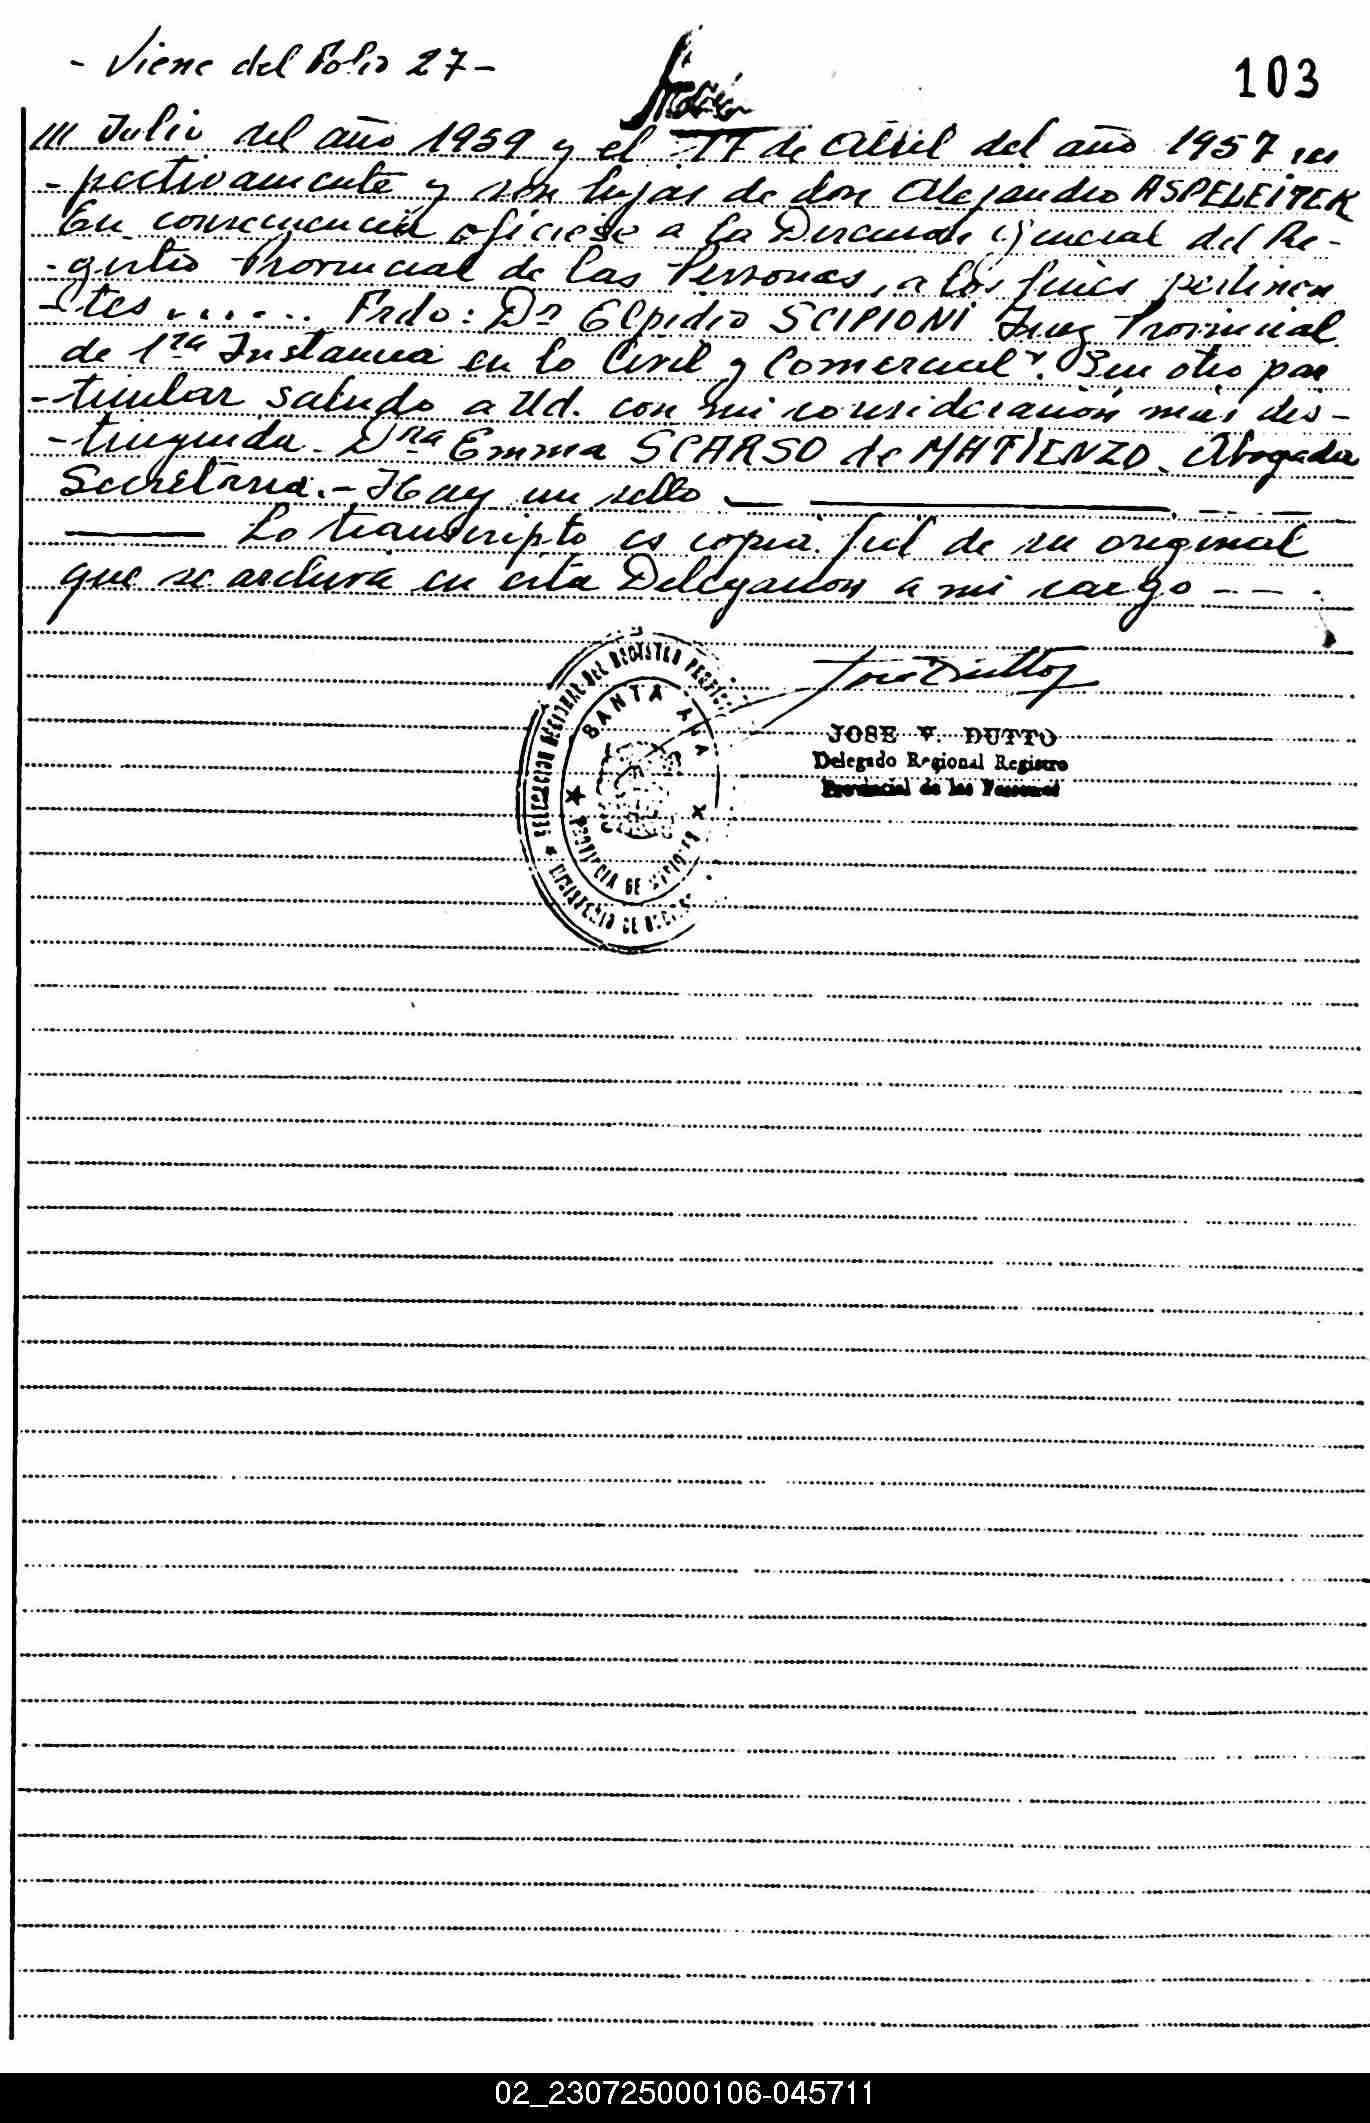 - Viene del Folio 27 -
103
/// Julio del año 1959 y el 17 de Abril del año 1957 res
- pectivamente y son hijas de don Alejandro ASPELEITER
En consecuencia ofíciese a la Dirección General del Re-
- gistro Provincial de las Personas, a los fines pertinen
- tes ...... Frdo: Dr Elpidio SCIPIONI Juez Provincial
de 1ra Instancia en lo Civil y Comercial. Sin otro par
- ticular saludo a Ud. con mi consideración más dis-
- tinguida. Dra Emma SCARSO de MATIENZO. Abogada
Secretaria.- Hay un sello
Lo transcripto es copia fiel de su original
que se archiva en esta Delegación a mi cargo - - - .
SANTA ANA
PROVINCIA DE MISIONES
JOSE V. DUTTO
Delegado Regional Registro
Provincial de las Personas
02_230725000106-045711